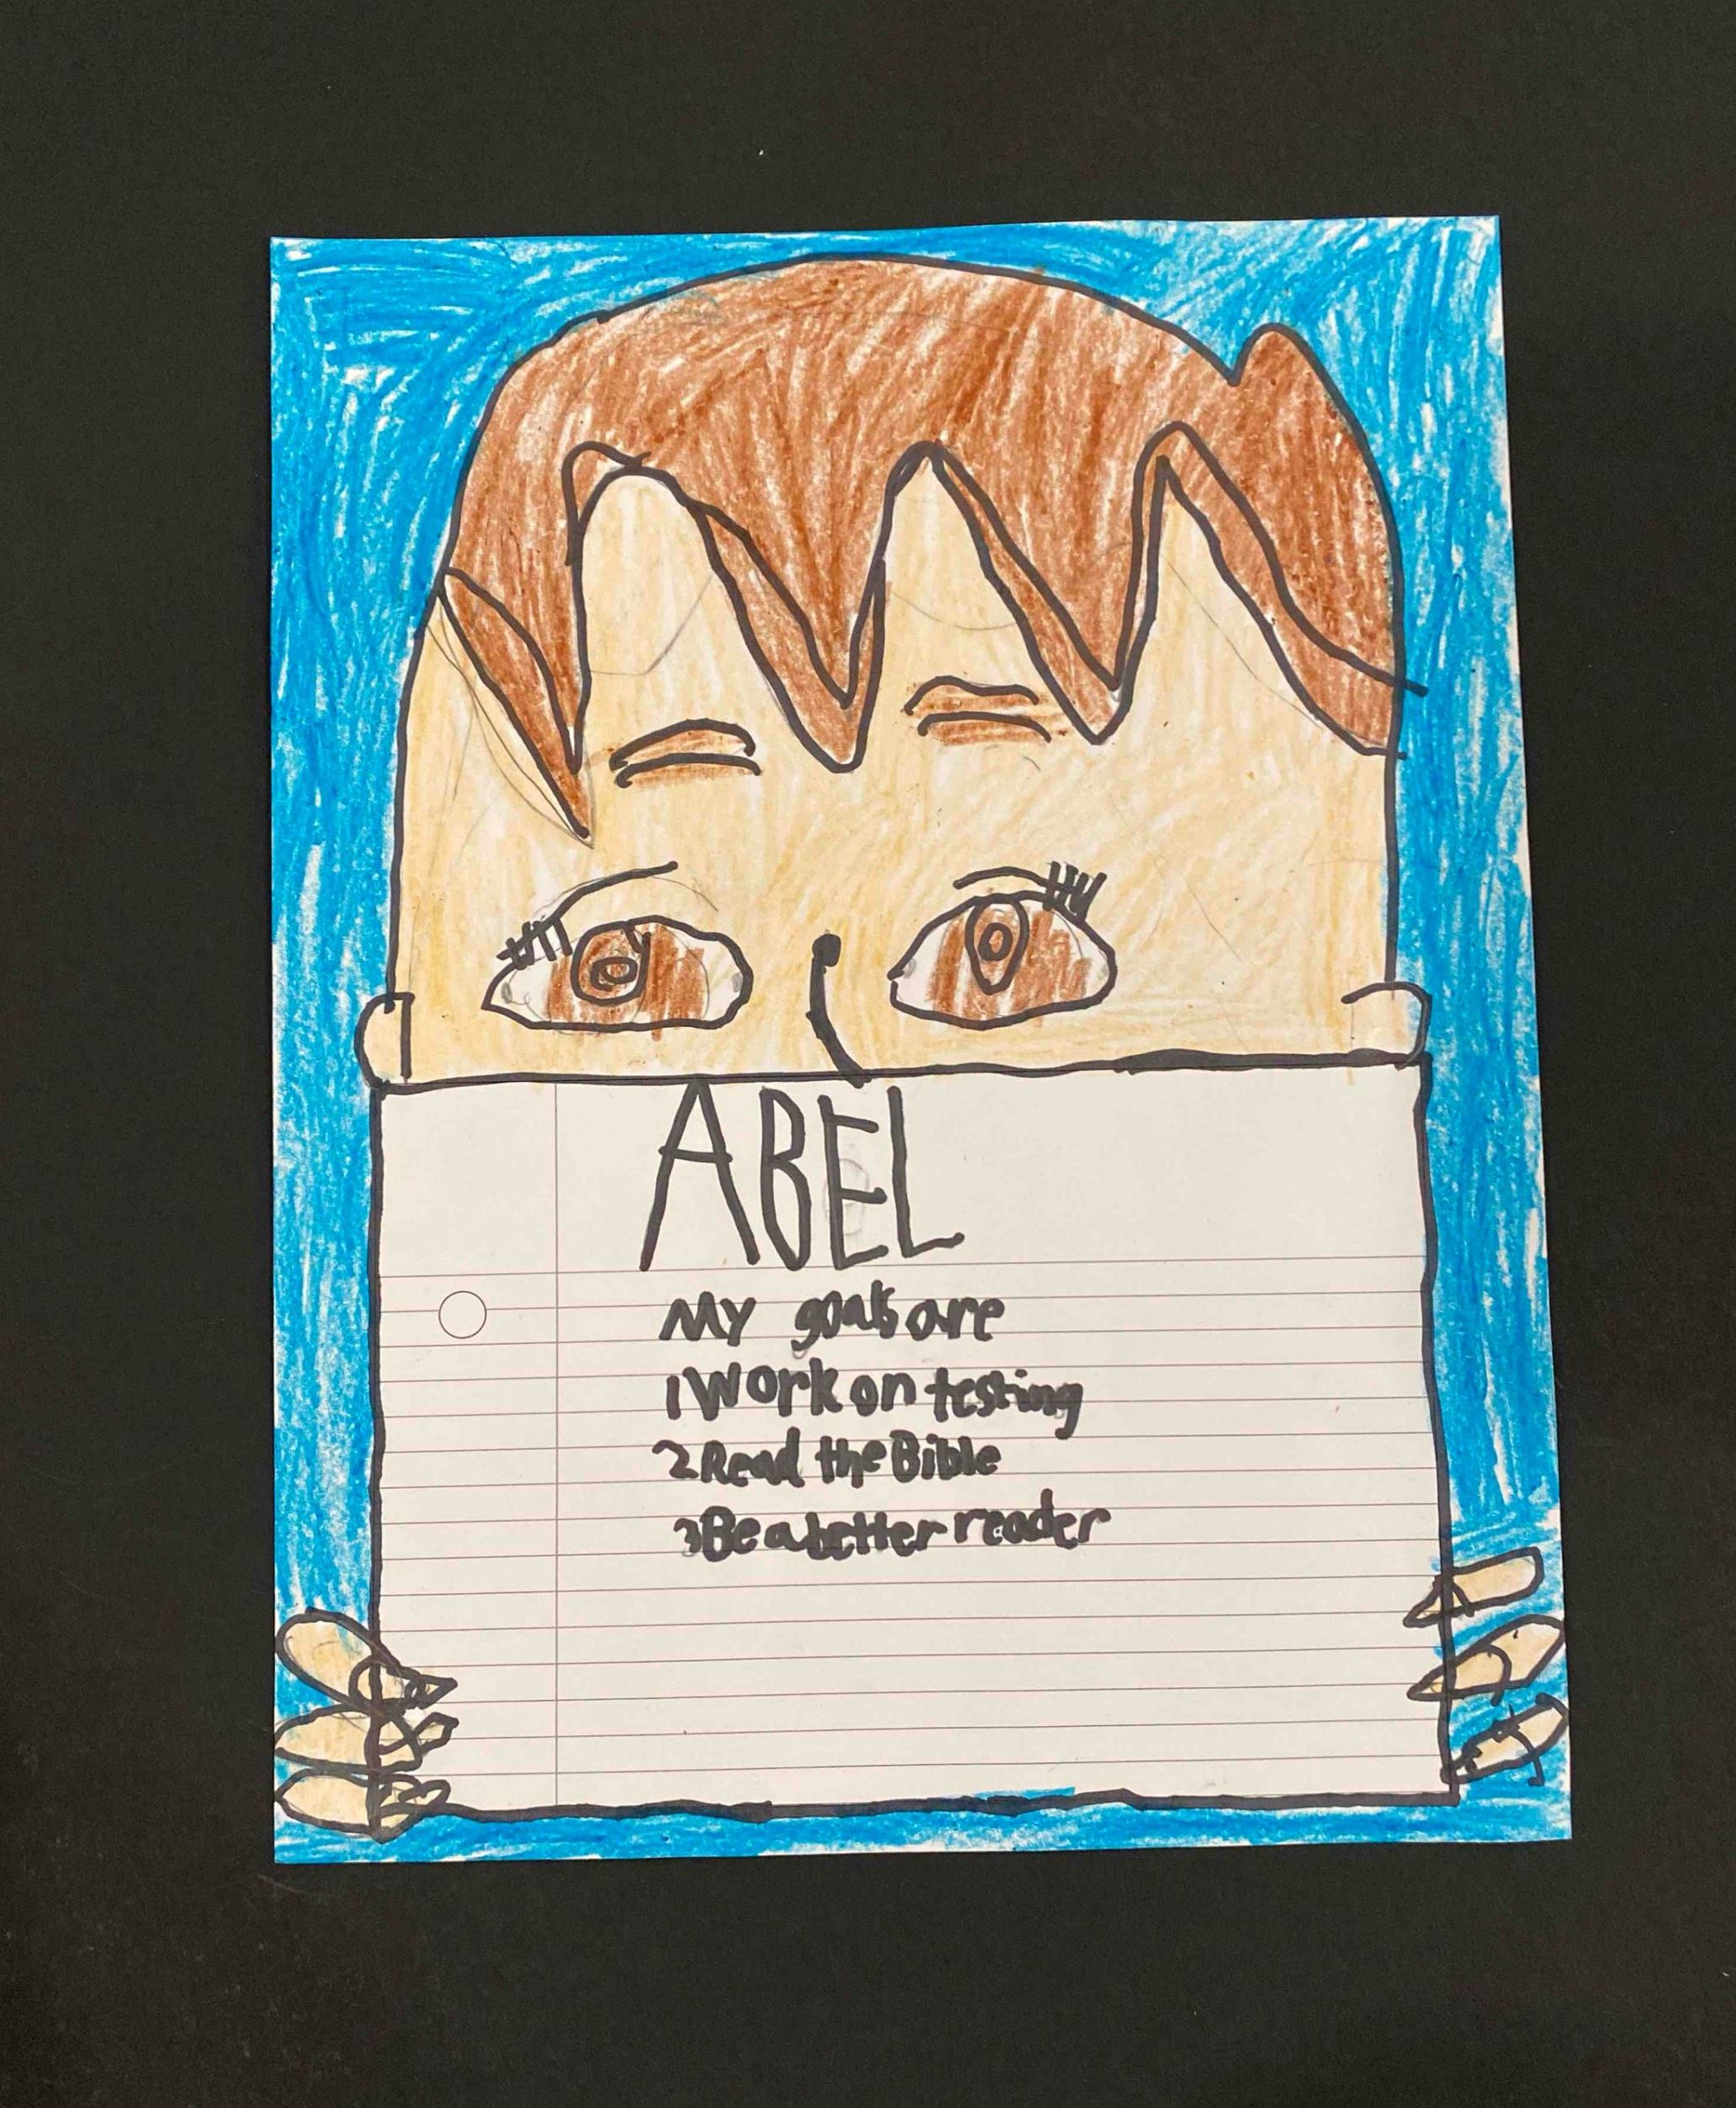 ABEL
My goals are
1 Work on testing
2 Read the Bible
3 Be a better reader